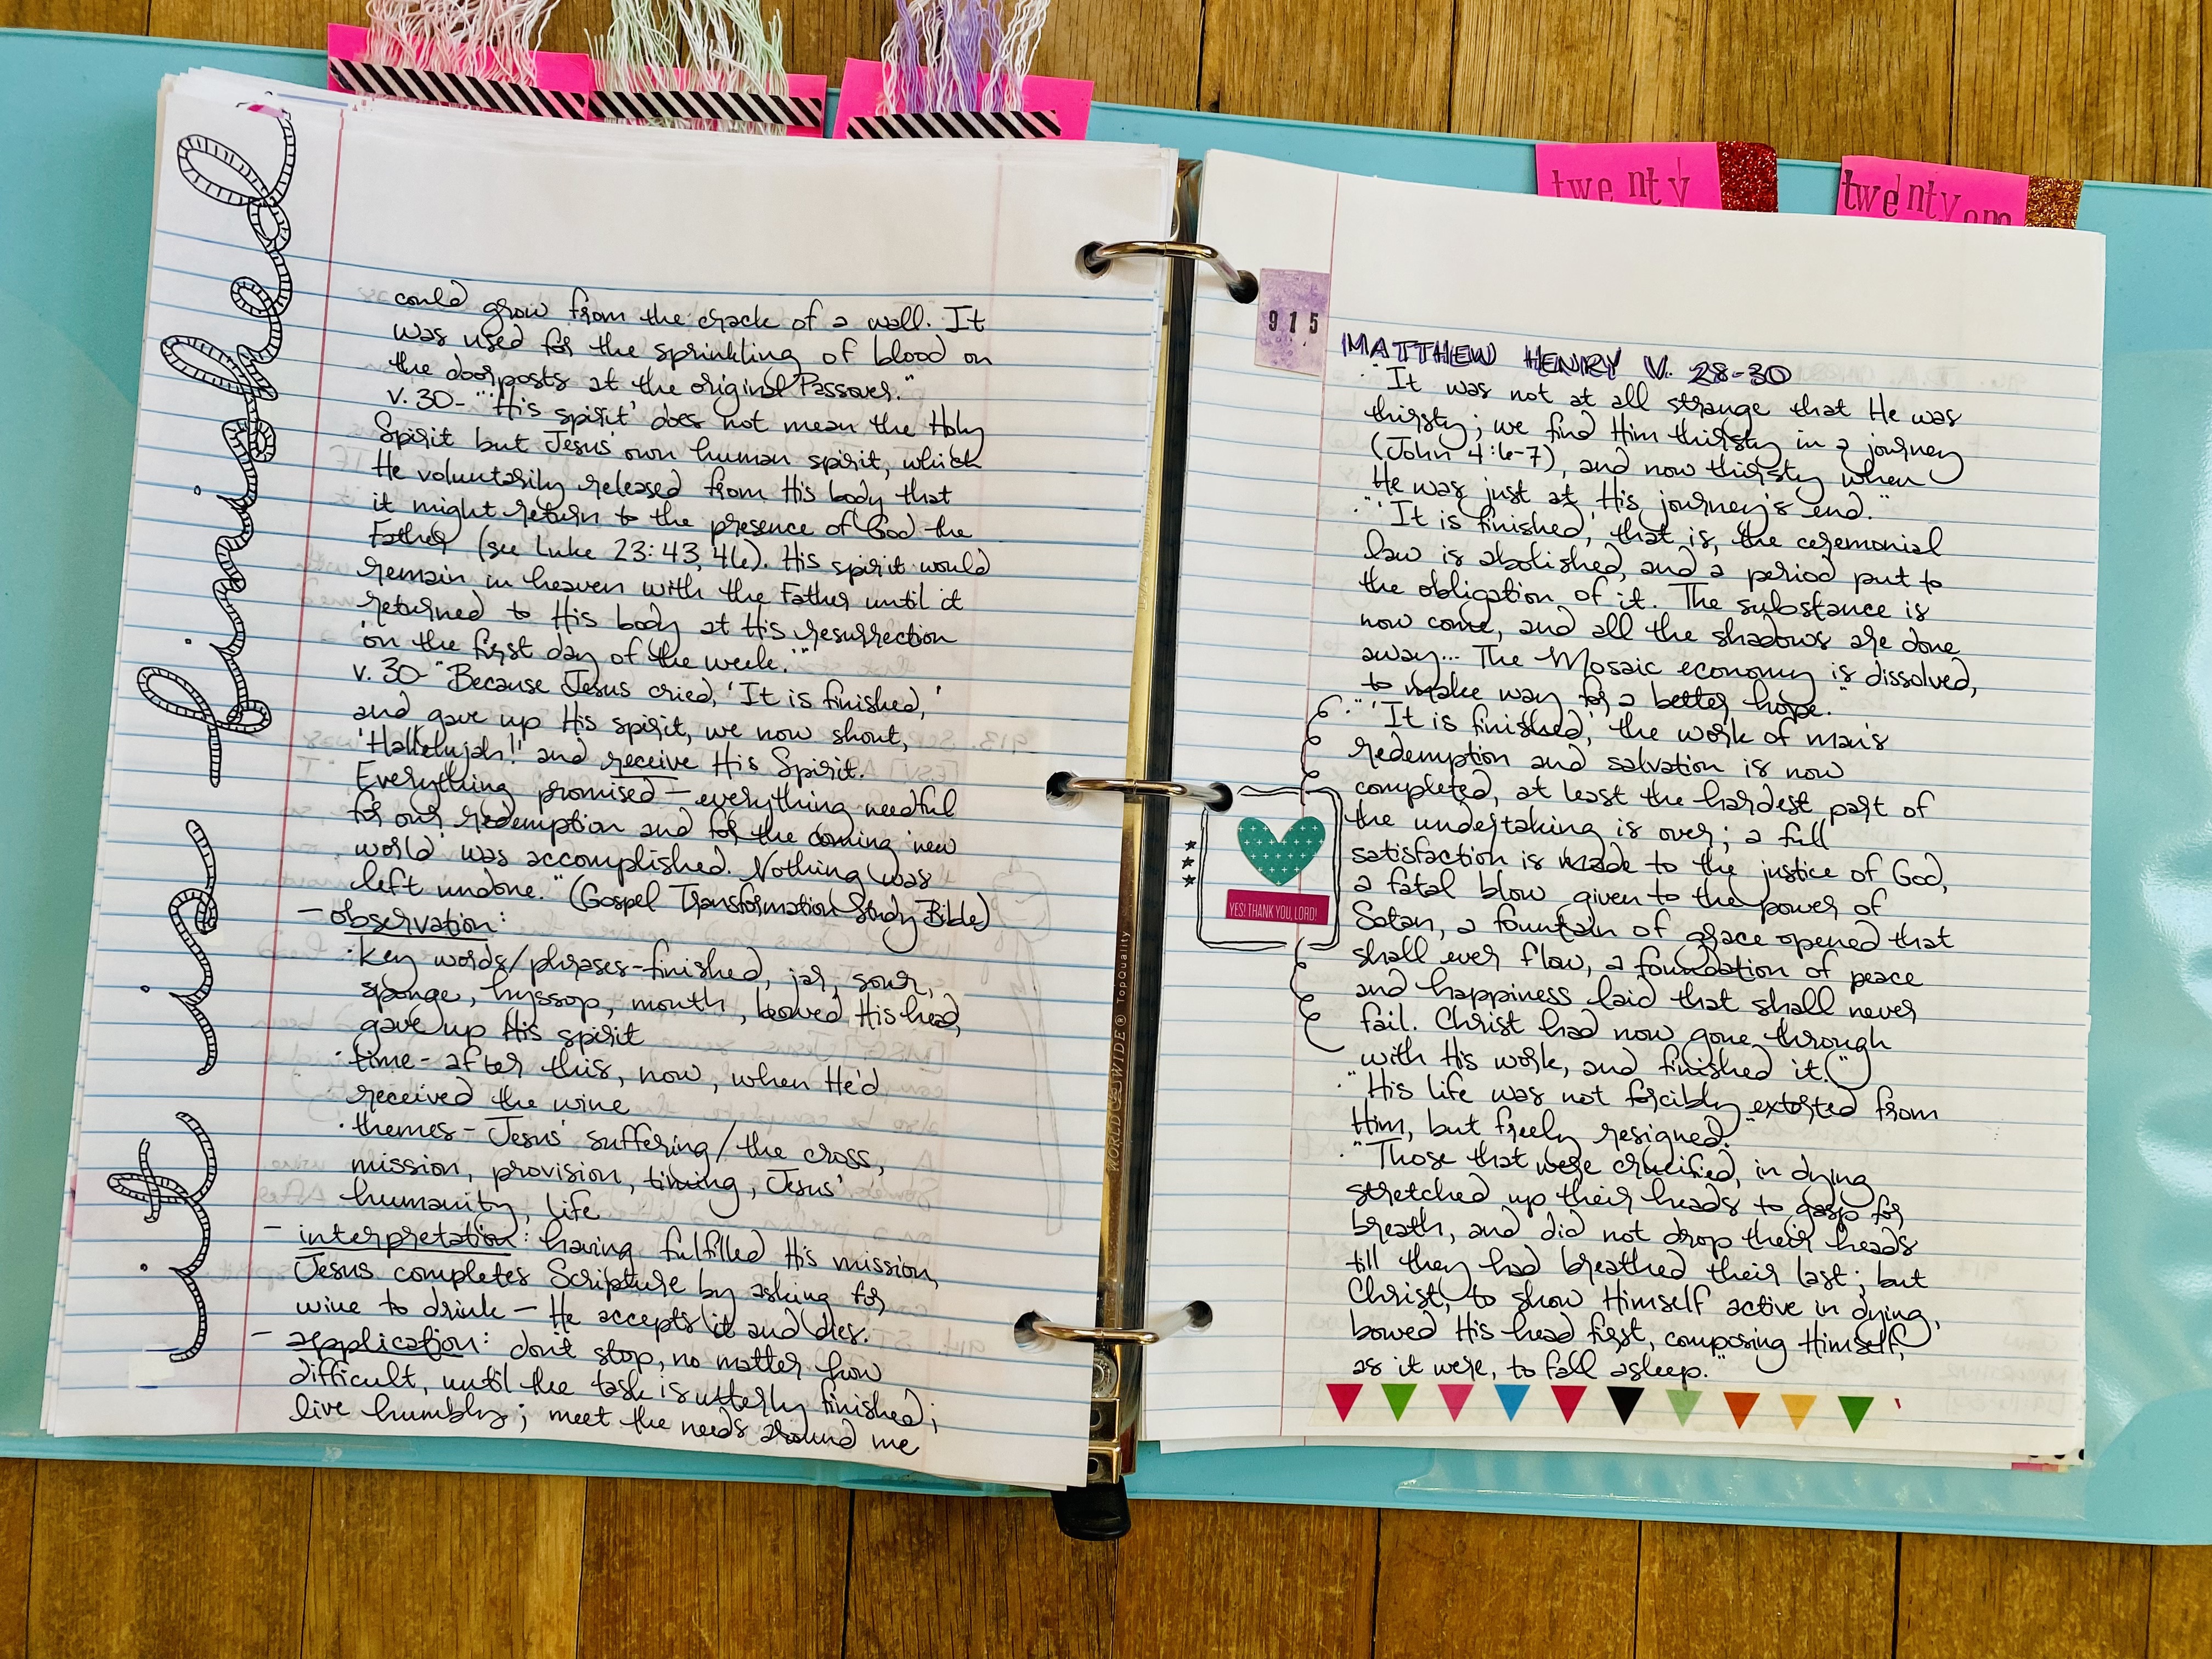 it is finished
could grow from the crack of a wall. It
was used for the sprinkling of blood on
the doorposts at the original Passover."
v. 30- "'His spirit' does not mean the Holy
Spirit but Jesus' own human spirit, which
He voluntarily released from His body that
it might return to the presence of God the
Father (see Luke 23:43, 46). His spirit would
remain in heaven with the Father until it
returned to His body at His resurrection
'on the first day of the week.'"
v. 30- "Because Jesus cried, 'It is finished,'
and gave up His spirit, we now shout,
'Hallelujah!!' and receive His Spirit.
Everything promised — everything needful
for our redemption and for the coming 'new
world' was accomplished. Nothing was
left undone." (Gospel Transformation Study Bible)
- observation:
· key words/phrases- finished, jar, sour,
sponge, hyssop, mouth, bowed His head,
gave up His spirit
· time - after this, now, when He'd
received the wine
· themes - Jesus' suffering/the cross,
mission, provision, timing, Jesus'
humanity, life
- interpretation: having fulfilled His mission,
Jesus completes Scripture by asking for
wine to drink — He accepts it and dies.
- application: don't stop, no matter how
difficult, until the task is utterly finished;
live humbly; meet the needs around me
WORLD WIDE ® TopQuality
twenty
twenty one
915
MATTHEW HENRY V. 28-30
· "It was not at all strange that He was
thirsty; we find Him thirsty in a journey
(John 4:6-7), and now thirsty when
He was just at His journey's end."
· "'It is finished,' that is, the ceremonial
law is abolished, and a period put to
the obligation of it. The substance is
now come, and all the shadows are done
away... The Mosaic economy is dissolved,
to make way for a better hope."
· "'It is finished,' the work of man's
redemption and salvation is now
completed, at least the hardest part of
the undertaking is over; a full
satisfaction is made to the justice of God,
a fatal blow given to the power of
Satan, a fountain of grace opened that
shall ever flow, a foundation of peace
and happiness laid that shall never
fail. Christ had now gone through
with His work, and finished it."
· "His life was not forcibly extorted from
Him, but freely resigned."
· "Those that were crucified, in dying
stretched up their heads to gasp for
breath, and did not drop their heads
till they had breathed their last; but
Christ, to show Himself active in dying,
bowed His head first, composing Himself,
as it were, to fall asleep."
YES! THANK YOU, LORD!